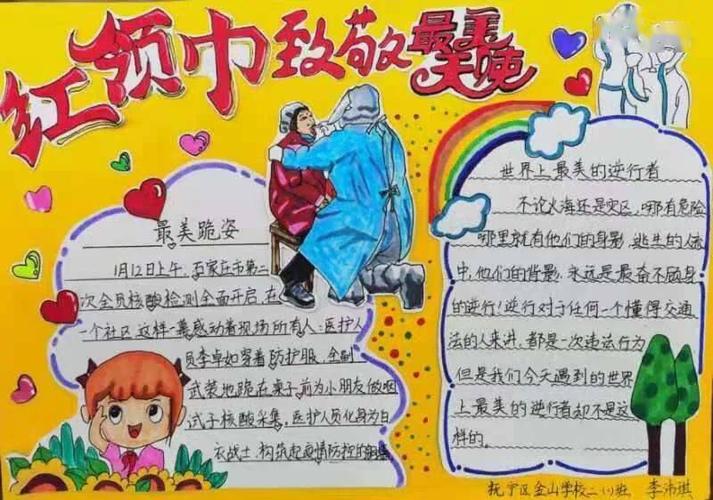 红领巾致敬最美天使
最美跪姿
1月12日上午,石家庄市第二
次全员核酸检测全面开启,在
一个社区这样一幕感动着现场所有人:医护人
员李卓如穿着防护服,全副
武装地跪在桌子前为小朋友做咽
试子核酸采集,医护人员化身为白
衣战士,构筑起疫情防控的铜墙
世界上最美的逆行者
不论火海还是灾区,哪有危险
哪里就有他们的身影,逃生的人流
中,他们的背影,永远是最奋不顾身
的逆行!逆行对于任何一个懂得交通
法的人来讲,都是一次违法行为
但是我们今天遇到的世界
上最美的逆行者却不是这
样的。
抚宁区金山学校二(1)班 李沛琪